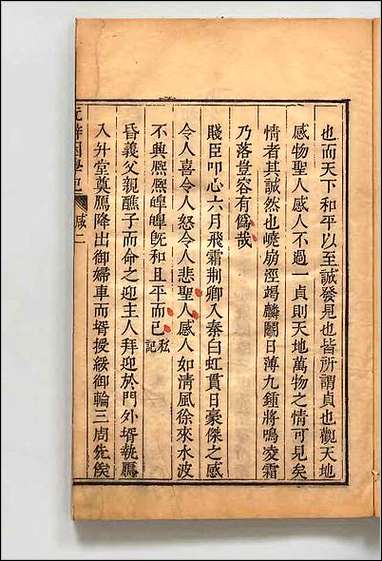 也而天下和平以至誠發見也皆所謂貞也觀天地
感物聖人感人不過一貞則天地萬物之情可見矣
情者其誠然也嶢崩涇竭麟鬭日薄九鍾將鳴凌霜
乃落豈容有僞哉
賤臣叩心六月飛霜荆卿入秦白虹貫日豪傑之感
令人喜令人怒令人悲聖人感人如清風徐來水波
不興熈熈皥皥旣和且平而已私記
昏義父親醮子而命之迎主人拜迎於門外壻執鴈
入升堂奠鴈降出御婦車而壻授綏御輪三周先俟